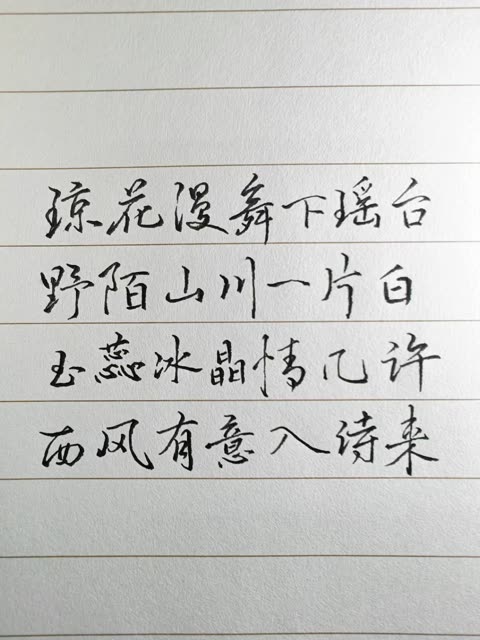 琼花漫舞下瑶台
野陌山川一片白
玉蕊冰晶情几许
西风有意入诗来